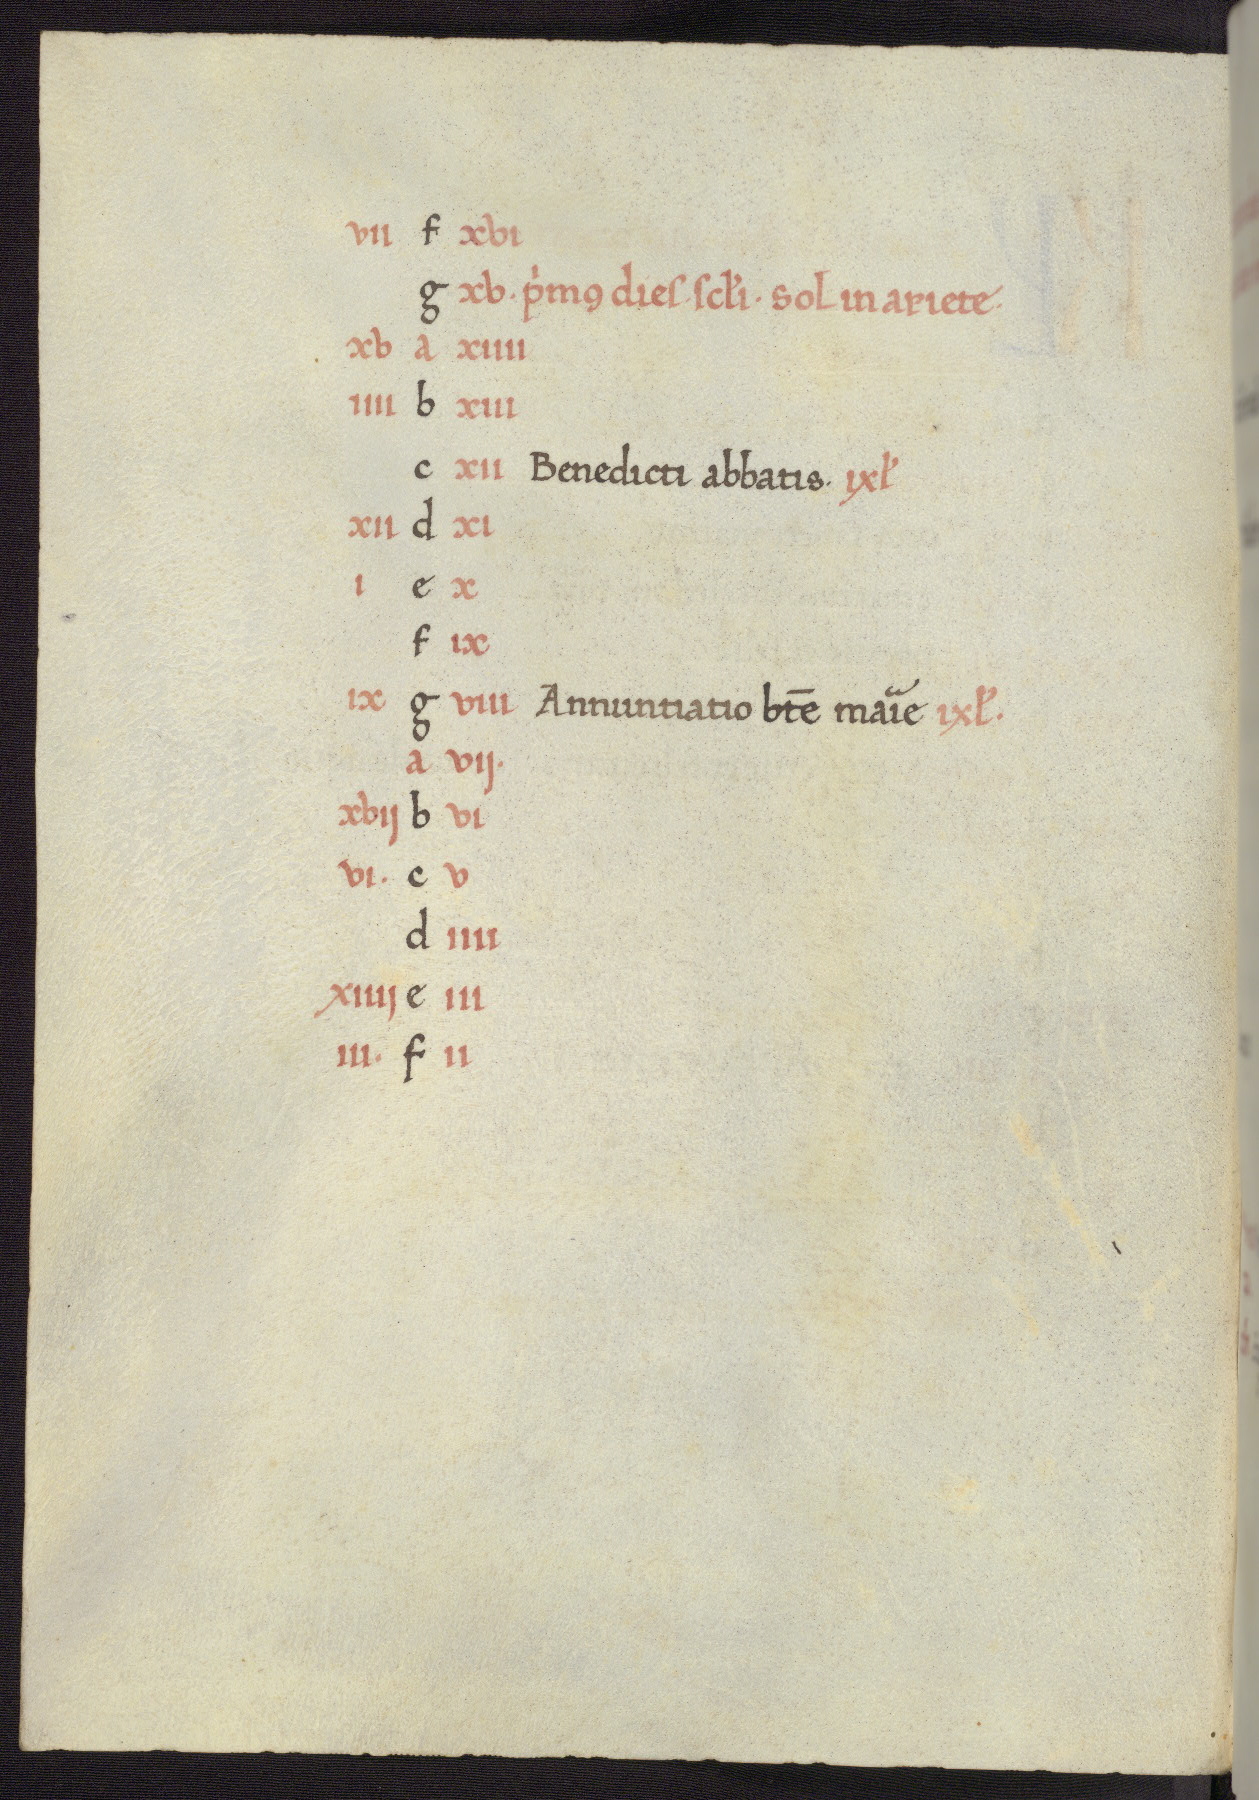 vii f xvi
g xv. p͛mꝯ dies scl̕i. Sol in ariete.
xv a xiiii
iiii b xiii
c xii Benedicti abbatis. ixl̕
xii d xi
i e x
f ix
ix g viii Annuntiatio bt̅e maiͣe ixl̕.
a vij.
xvij b vi
vi. c v
d iiii
xiiij e iii
iii. f ii